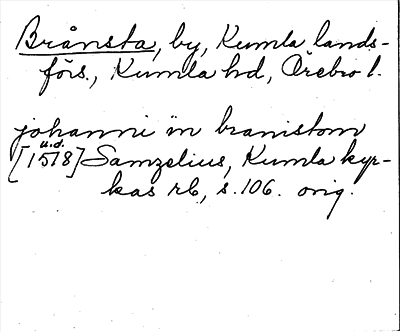 Brånsta, by, Kumla lands-
förs., Kumla hd, Örebro l.
johanni in branistom
u.d.
[1518] Samzelius, Kumla kyr-
kas rb, s. 106. orig.